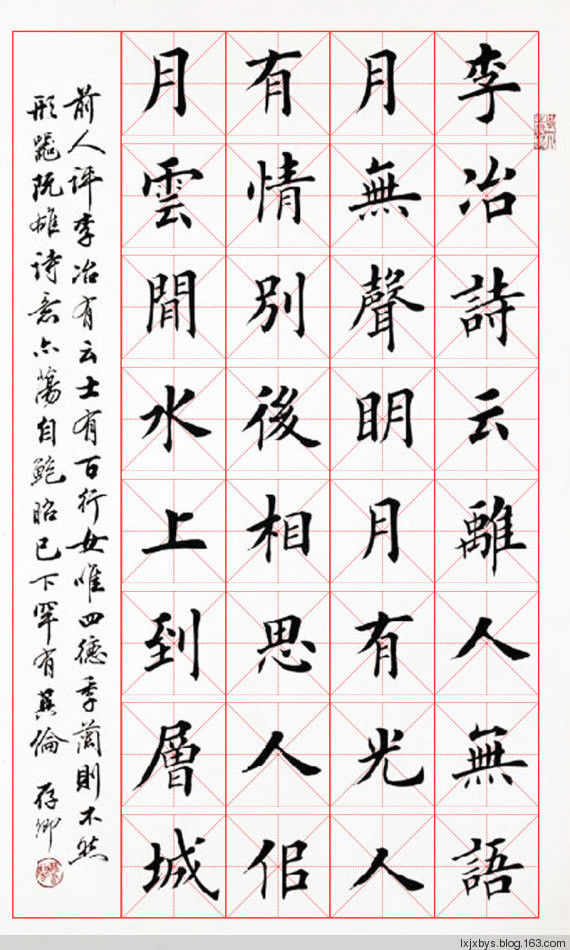 李冶詩云離人無語
月無聲明月有光人
有情別後相思人佀
月雲閒水上到層城
前人评李冶有云士有百行女唯四德季蘭則不然
形器既雄詩意亦蕩自鮑昭已下罕有其倫 存卿
lxjxbys.blog.163.com